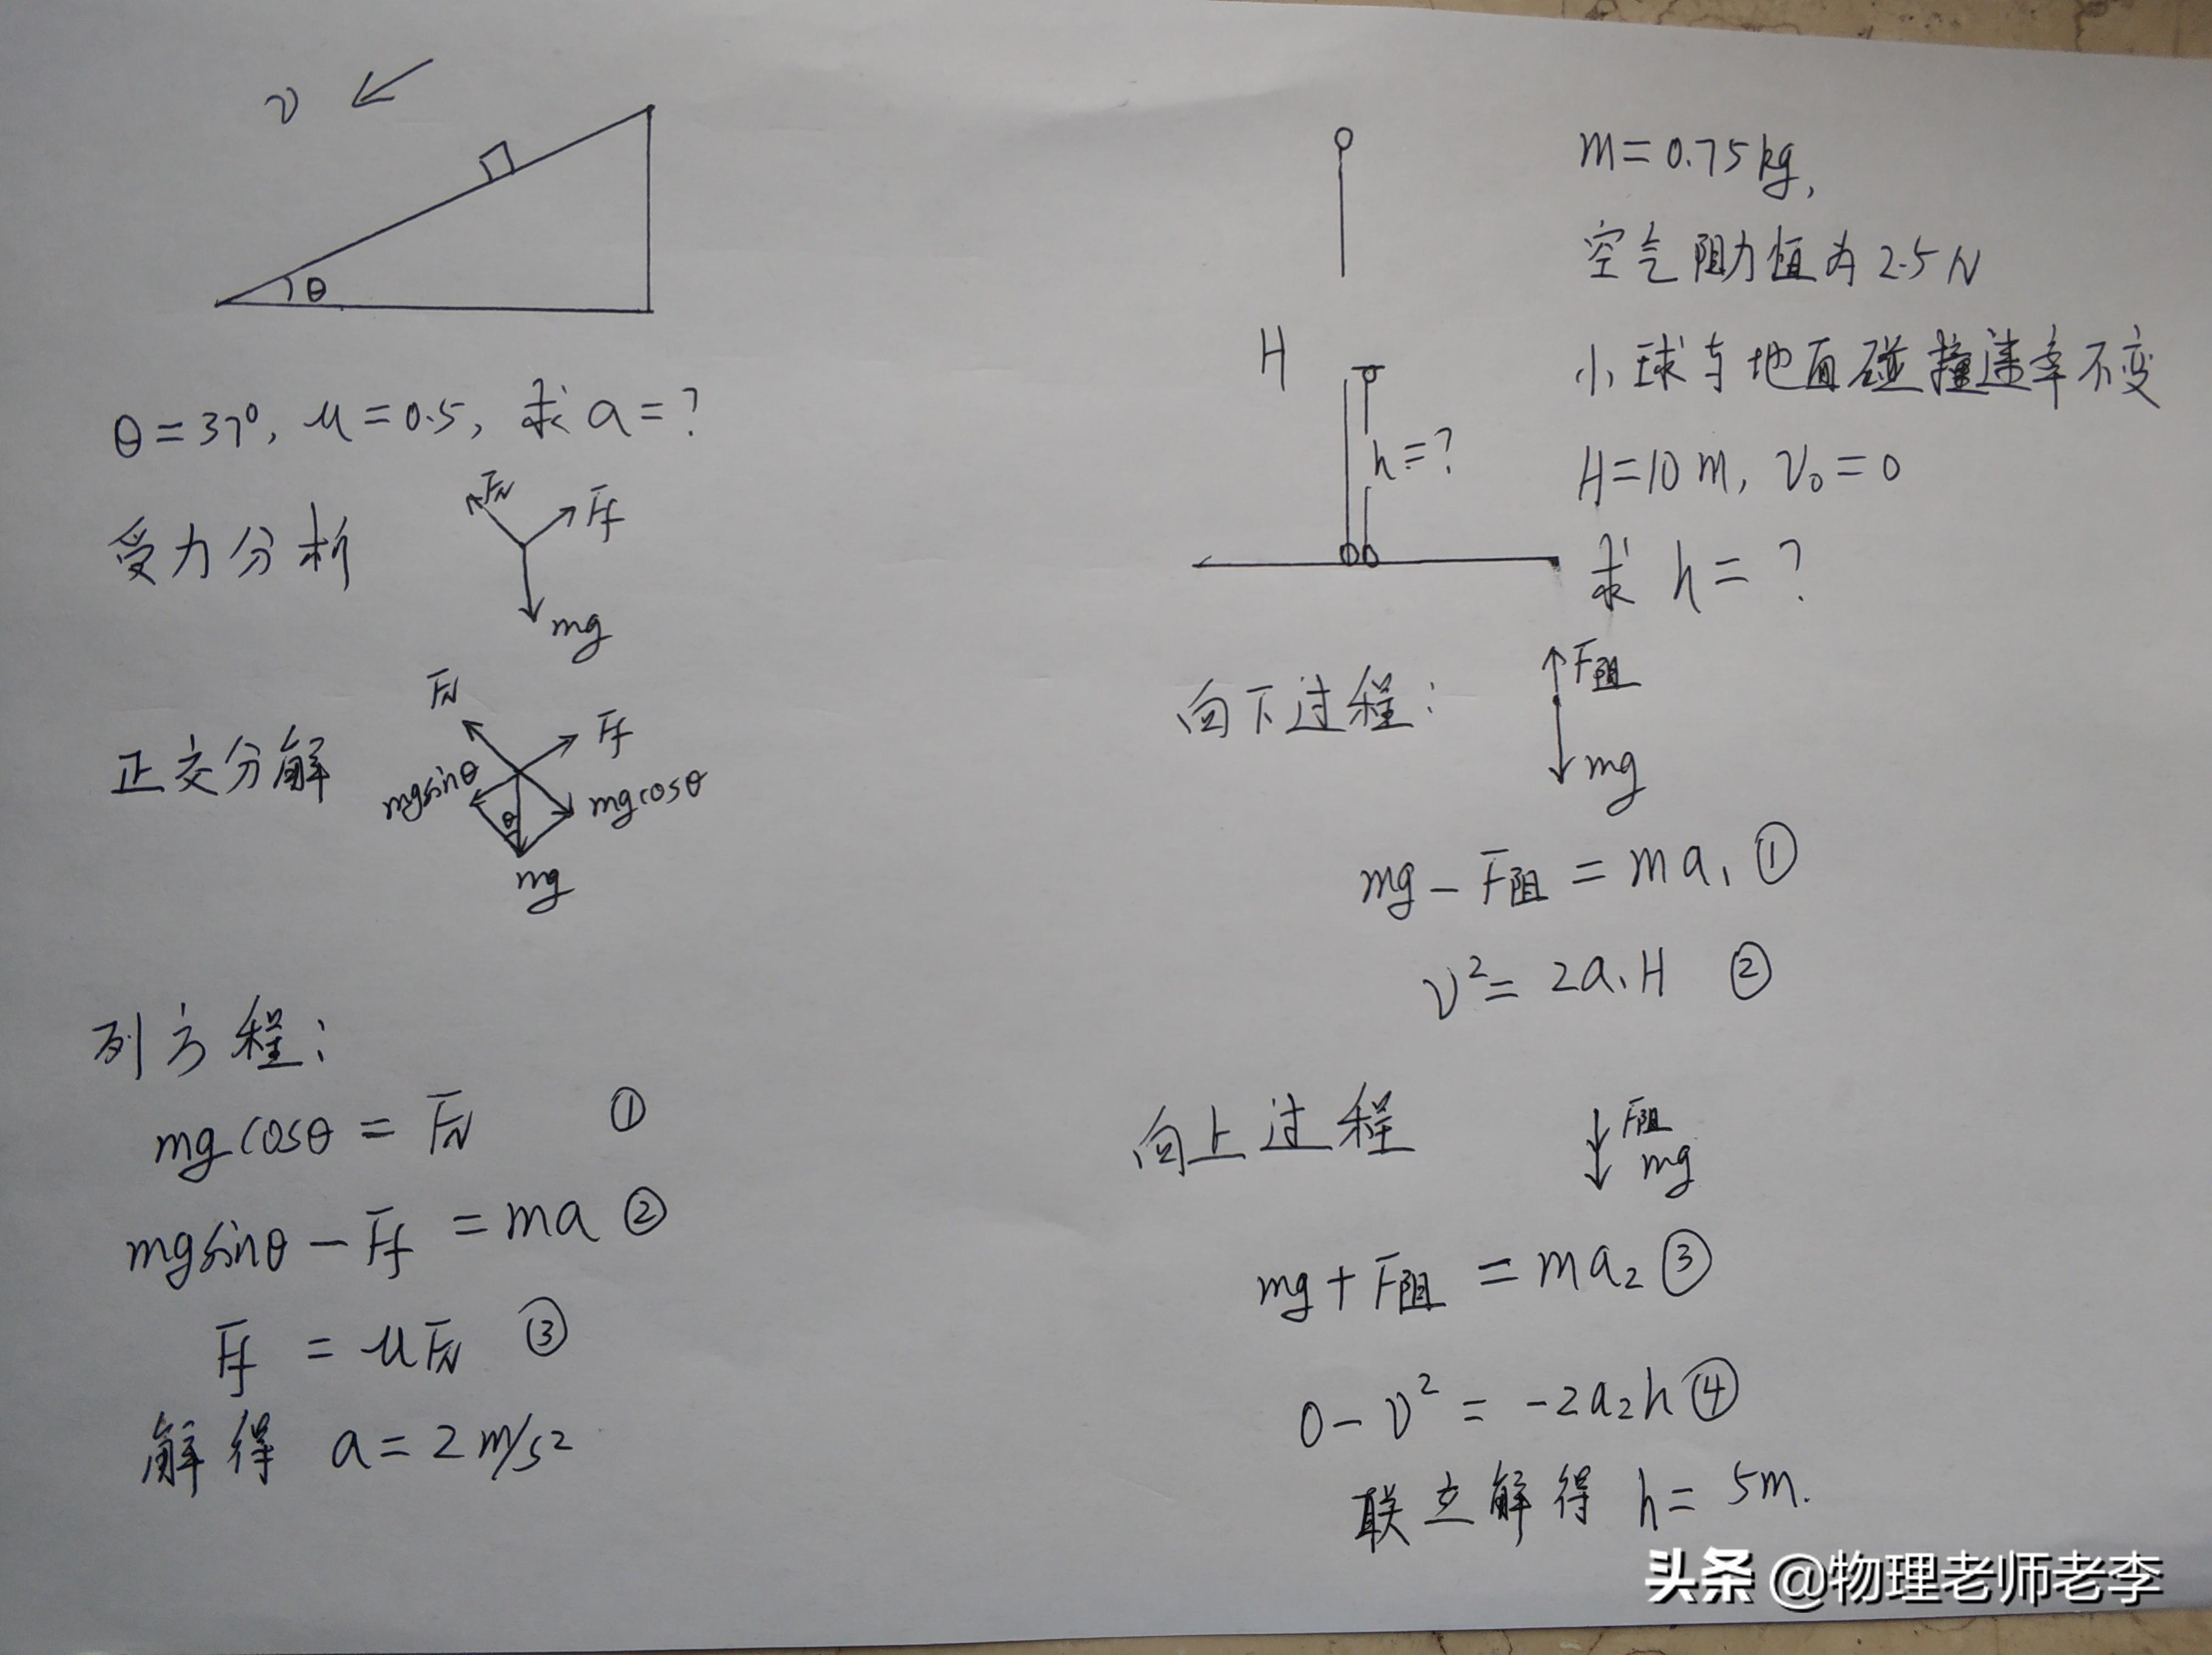 v
θ
θ=37°, μ=0.5, 求 a=?
受力分析
FN
Ff
mg
正交分解
FN
Ff
mgsinθ
mgcosθ
θ
mg
列方程:
mgcosθ = FN ①
mgsinθ - Ff = ma ②
Ff = μFN ③
解得 a=2m/s²
H
h=?
m=0.75kg,
空气阻力恒为2.5N
小球与地面碰撞速率不变
H=10m, v₀=0
求 h=?
向下过程:
F阻
mg
mg-F阻=ma₁ ①
v²=2a₁H ②
向上过程
F阻
mg
mg+F阻=ma₂ ③
0-v²=-2a₂h ④
联立解得 h=5m.
头条 @物理老师老李